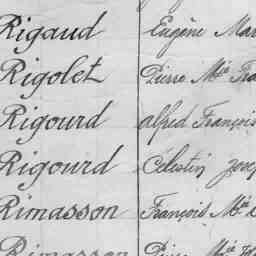 Rigaud Eugène Mar
Rigolet Pierre Mie Fra
Rigourd alfred François
Rigourd Célestin Josep
Rimasson François Mie
Rimasson Pierre Mie